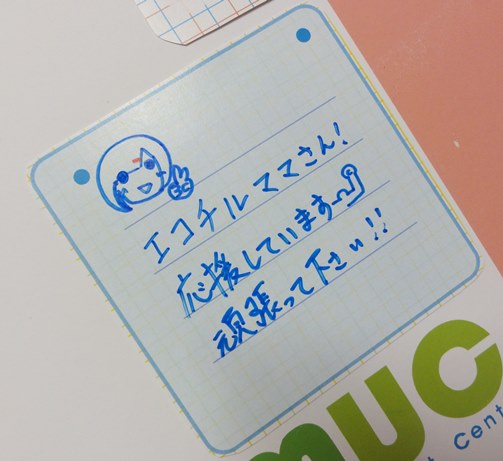 エコチルママさん!
応援しています
頑張って下さい!!
MUC
t Cent